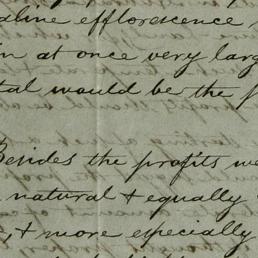 aline efflorescence
in at once very larg
tal would be the p
Besides the profits we
natural & equally
, & more especially